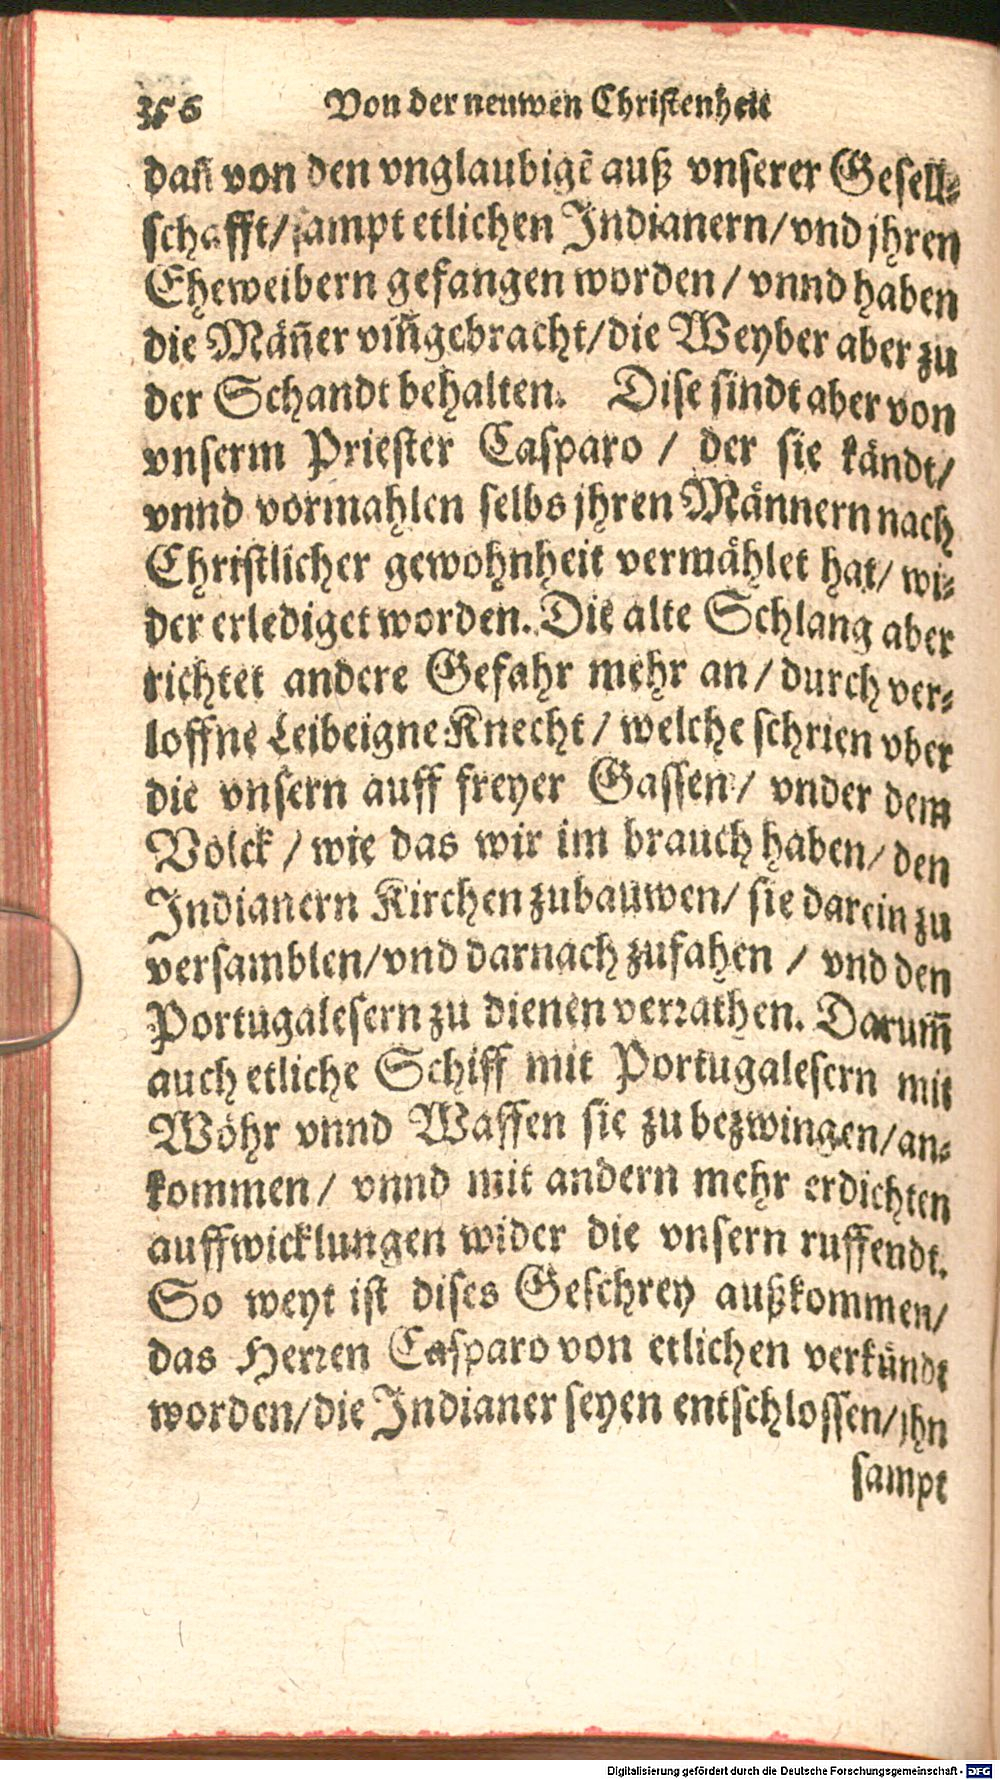 356 Von der neuwen Christenheit
dañ von den vnglaubigẽ auß vnserer Gesell-
schafft/ sampt etlichen Indianern/ vnd jhren
Eheweibern gefangen worden/ vnnd haben
die Mäñer vm̃gebracht/ die Weyber aber zu
der Schandt behalten. Dise sindt aber von
vnserm Priester Casparo / der sie kändt/
vnnd vormahlen selbs jhren Männern nach
Christlicher gewohnheit vermählet hat/ wi-
der erlediget worden. Die alte Schlang aber
richtet andere Gefahr mehr an/ durch ver-
loffne Leibeigne Knecht/ welche schrien vber
die vnsern auff freyer Gassen/ vnder dem
Volck/ wie das wir im brauch haben/ den
Indianern Kirchen zubauwen/ sie darein zu
versamblen/ vnd darnach zufahen / vnd den
Portugalesern zu dienen verrathen. Darum̃
auch etliche Schiff mit Portugalesern mit
Wöhr vnnd Waffen sie zu bezwingen/ an-
kommen/ vnnd mit andern mehr erdichten
auffwicklungen wider die vnsern ruffendt.
So weyt ist dises Geschrey außkommen/
das Herren Casparo von etlichen verkündt
worden/ die Indianer seyen entschlossen/ jhn
sampt
Digitalisierung gefördert durch die Deutsche Forschungsgemeinschaft - DFG